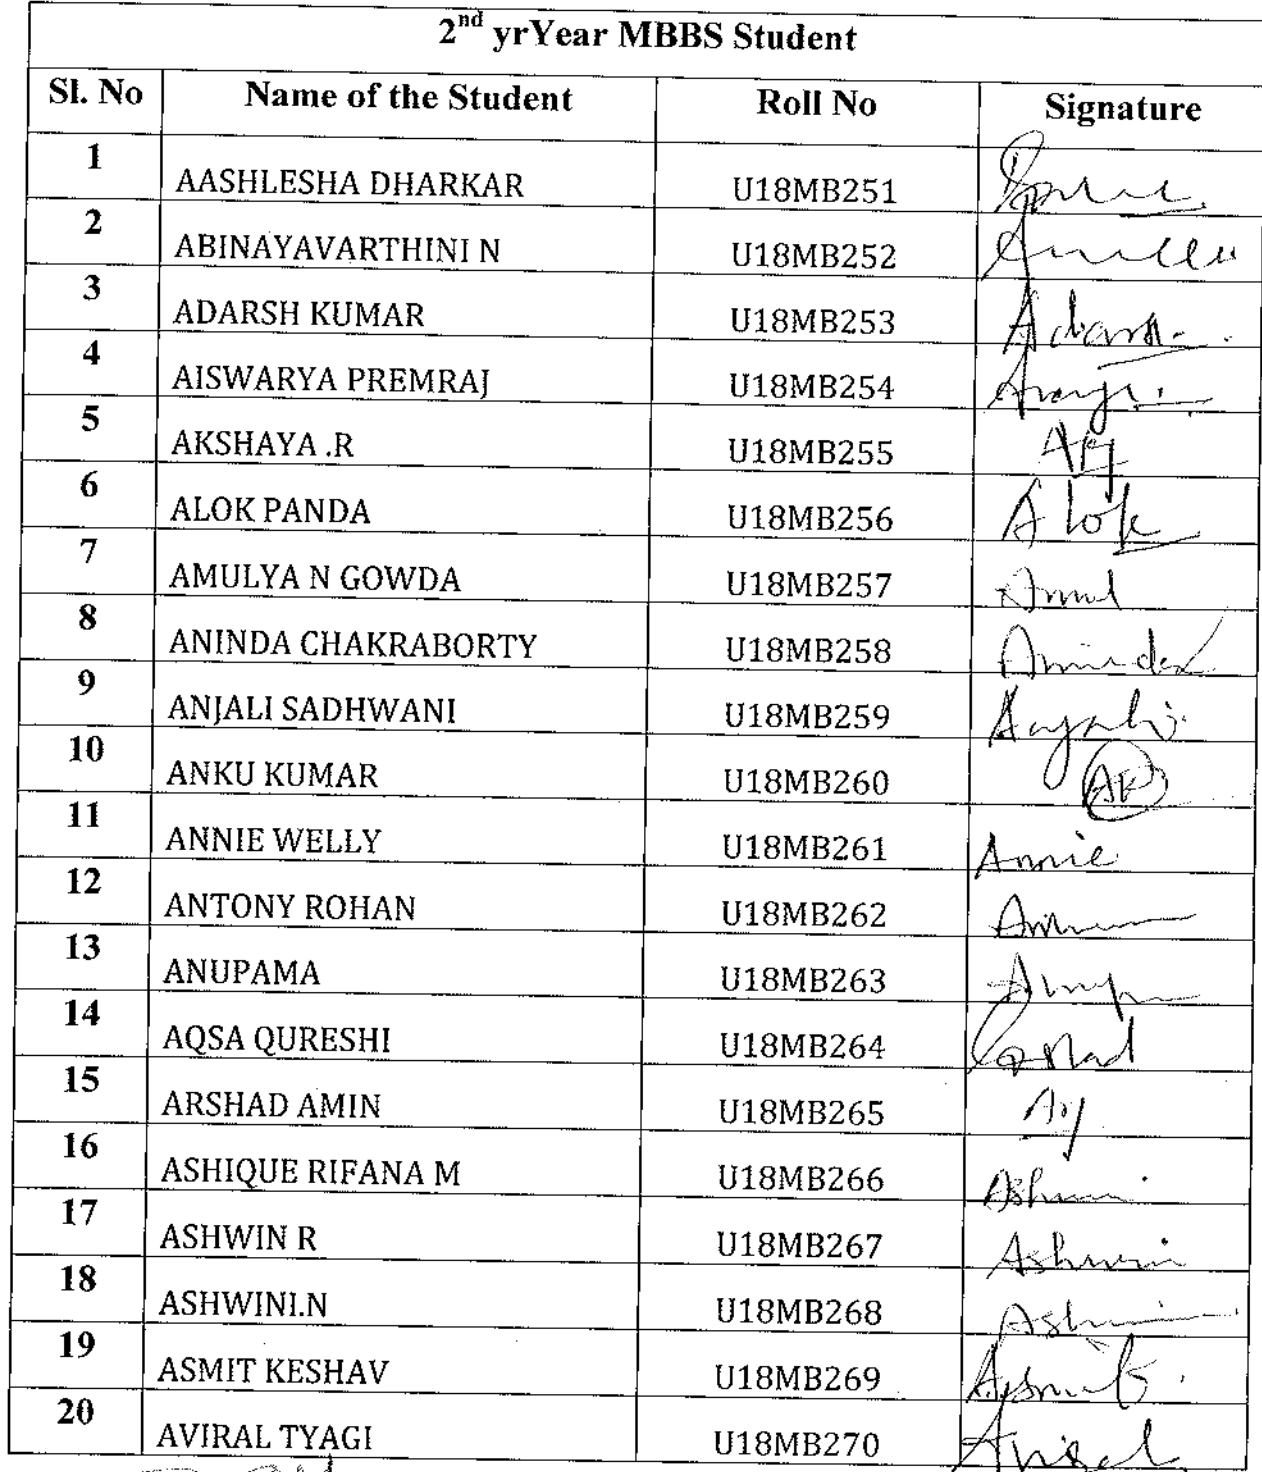 2nd yrYear MBBS Student
Sl. No Name of the Student Roll No Signature
1 AASHLESHA DHARKAR U18MB251
2 ABINAYAVARTHINI N U18MB252
3 ADARSH KUMAR U18MB253 Adarsh
4 AISWARYA PREMRAJ U18MB254
5 AKSHAYA .R U18MB255
6 ALOK PANDA U18MB256 Alok
7 AMULYA N GOWDA U18MB257 Amul
8 ANINDA CHAKRABORTY U18MB258 Aninda
9 ANJALI SADHWANI U18MB259 Anjali
10 ANKU KUMAR U18MB260 AK
11 ANNIE WELLY U18MB261 Annie
12 ANTONY ROHAN U18MB262
13 ANUPAMA U18MB263
14 AQSA QURESHI U18MB264
15 ARSHAD AMIN U18MB265
16 ASHIQUE RIFANA M U18MB266
17 ASHWIN R U18MB267 Ashwin
18 ASHWINI.N U18MB268
19 ASMIT KESHAV U18MB269 Asmit
20 AVIRAL TYAGI U18MB270 Aviral